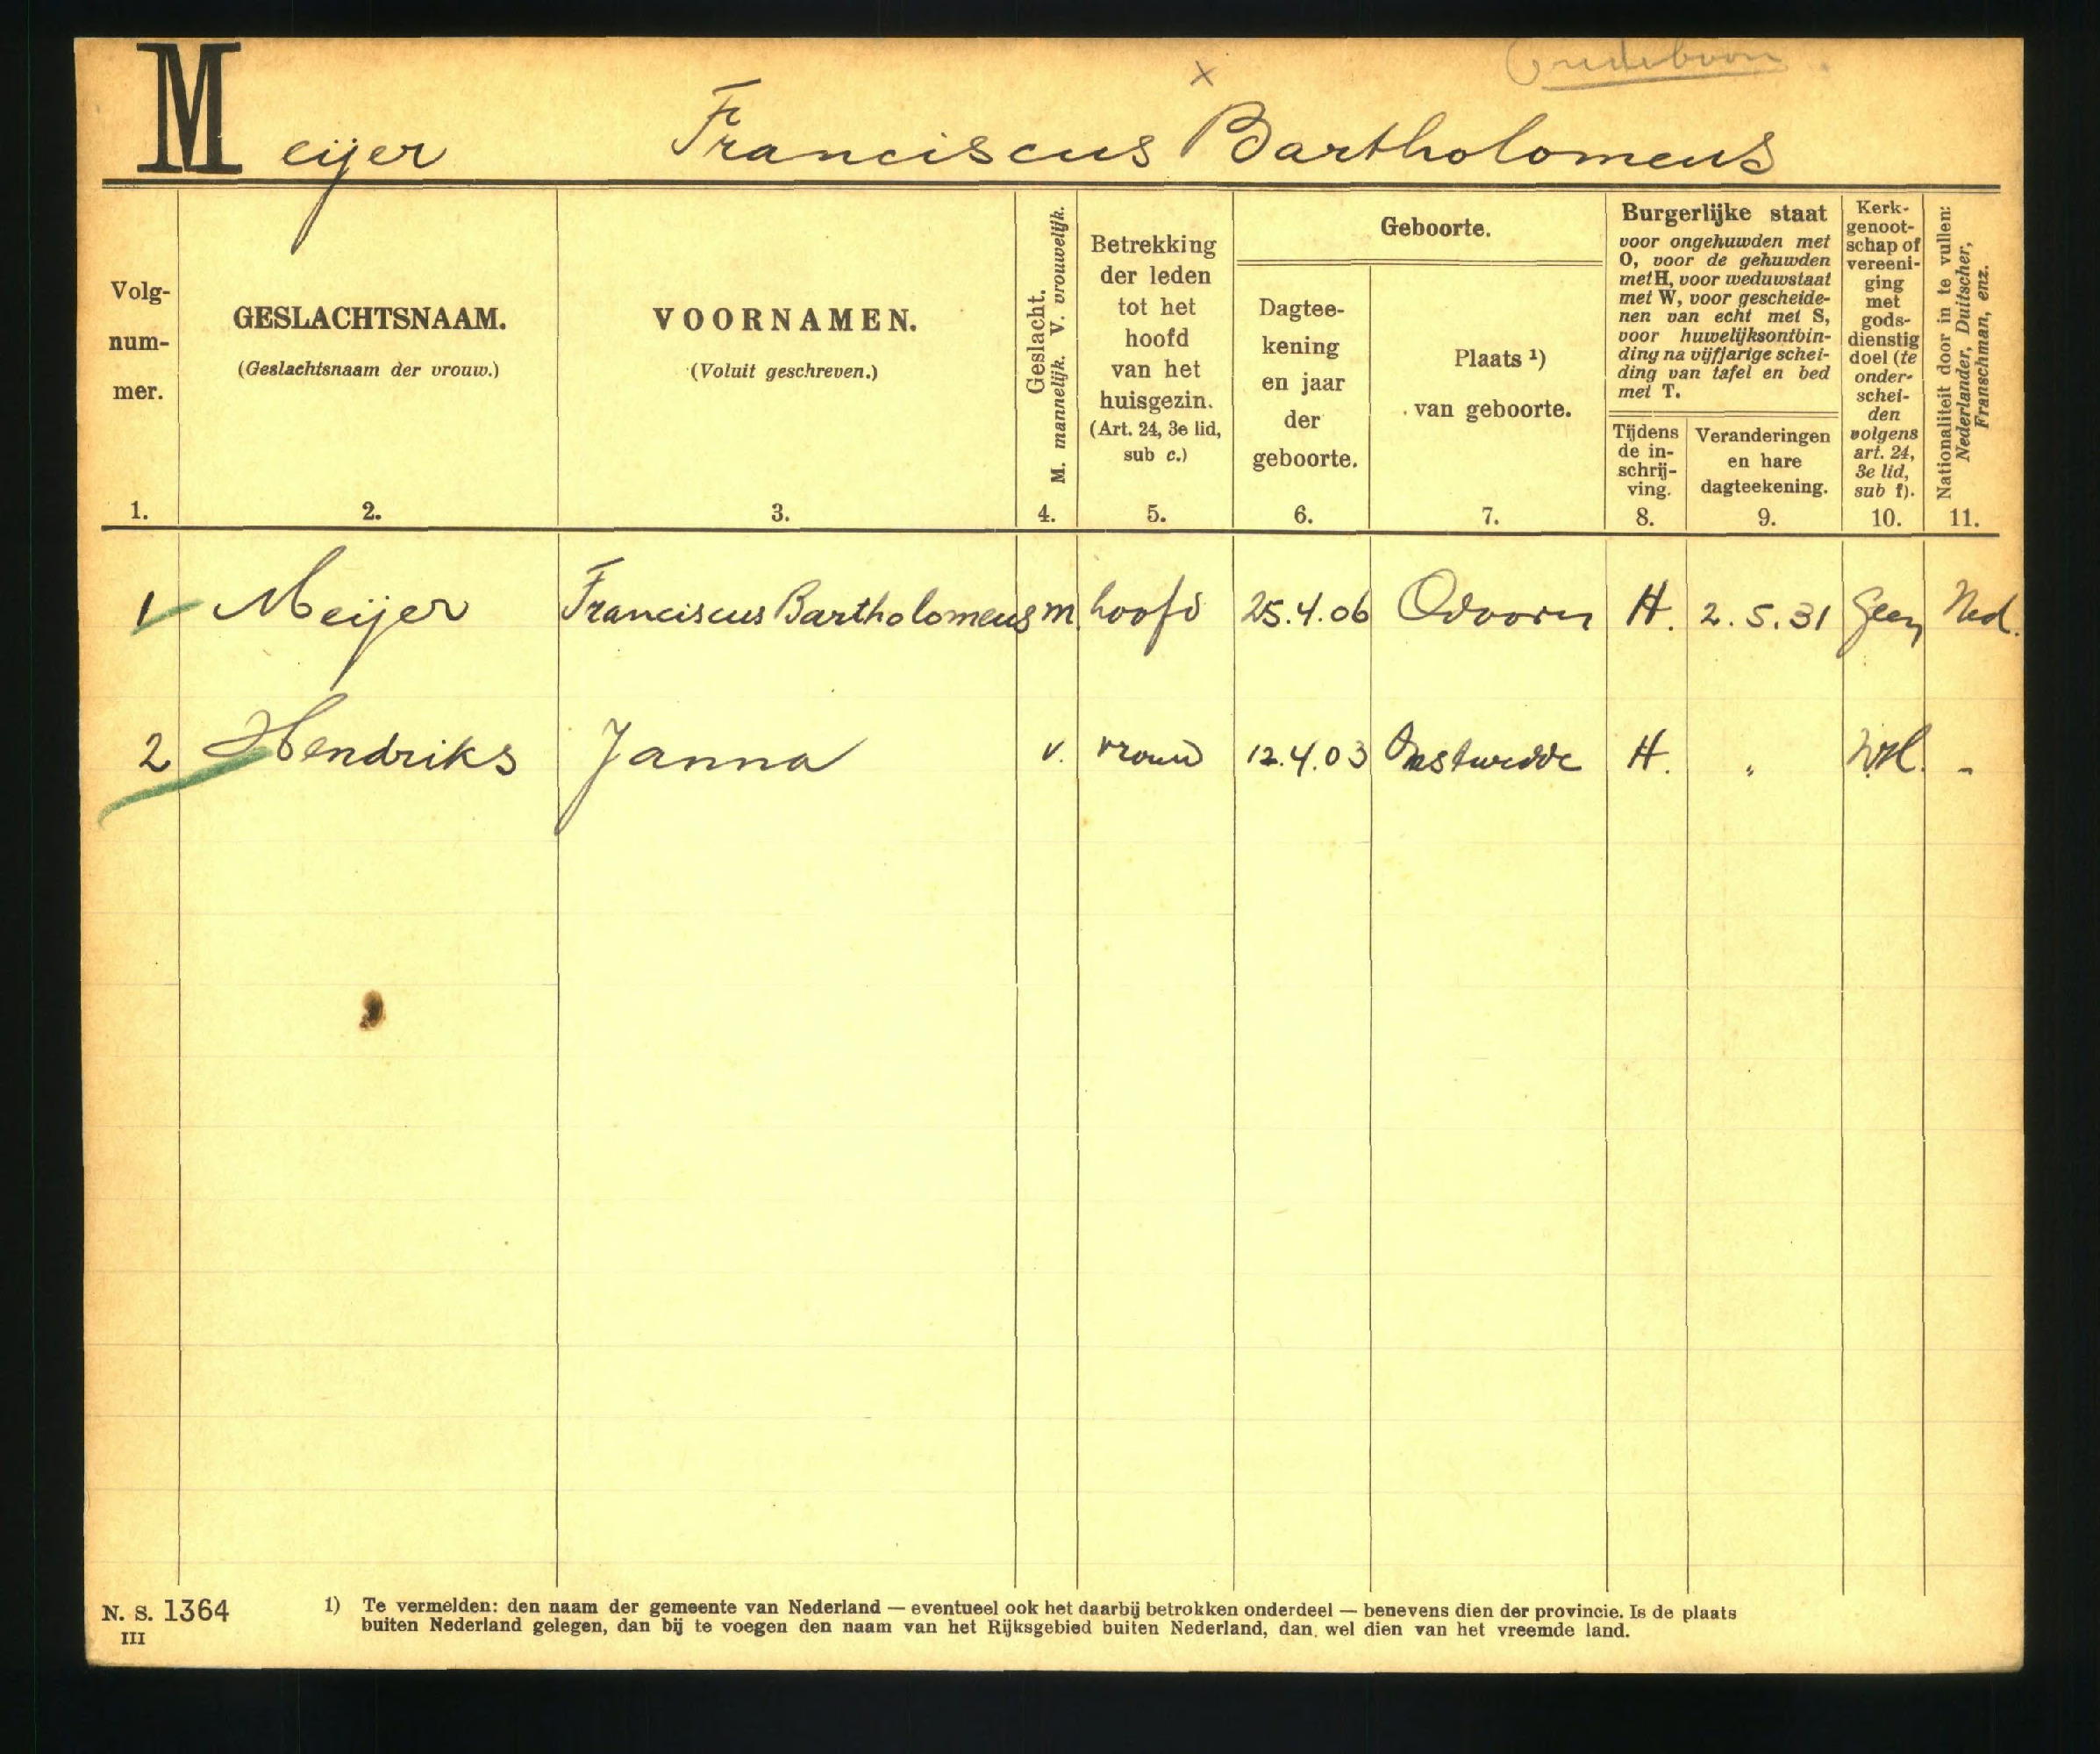 Meijer Franciscus Bartholomeus
x
Volg-
num-
mer.
1.
GESLACHTSNAAM.
(Geslachtsnaam der vrouw.)
2.
VOORNAMEN.
(Voluit geschreven.)
3.
Geslacht.
M. mannelijk. V. vrouwelijk.
4.
Betrekking
der leden
tot het
hoofd
van het
huisgezin.
(Art. 24, 3e lid,
sub c.)
5.
Geboorte.
Dagtee-
kening
en jaar
der
geboorte.
6.
Plaats ¹)
van geboorte.
7.
Burgerlijke staat
voor ongehuwden met
O, voor de gehuwden
met H, voor weduwstaat
met W, voor gescheide-
nen van echt met S,
voor huwelijksontbin-
ding na vijfjarige schei-
ding van tafel en bed
met T.
Tijdens
de in-
schrij-
ving.
8.
Veranderingen
en hare
dagteekening.
9.
Kerk-
genoot-
schap of
vereeni-
ging
met
gods-
dienstig
doel (te
onder-
schei-
den
volgens
art. 24,
3e lid,
sub f).
10.
Nationaliteit door in te vullen:
Nederlander, Duitscher,
Franschman, enz.
11.
1 Meijer Franciscus Bartholomeus m. hoofd 25.4.06 Odoorn H. 2.5.31 Geen Ned.
2 Hendriks Janna v. vrouw 12.4.03 Onstwedde H. " N.H. -
N. S. 1364
III
1) Te vermelden: den naam der gemeente van Nederland — eventueel ook het daarbij betrokken onderdeel — benevens dien der provincie. Is de plaats
buiten Nederland gelegen, dan bij te voegen den naam van het Rijksgebied buiten Nederland, dan wel dien van het vreemde land.